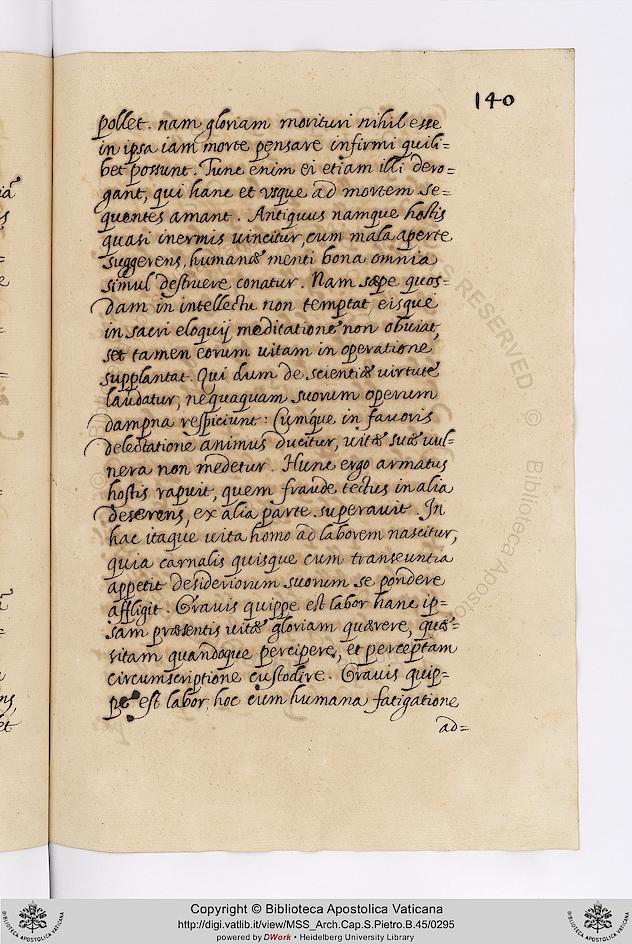 140
pollet. nam gloriam morituri nihil esse
in ipsa iam morte pensare infirmi quili=
bet possunt. Tunc enim ei etiam illi dero=
gant, qui hanc et vsque ad mortem se=
quentes amant. Antiquus namque hostis
quasi inermis uincitur, cum mala aperte
suggerens, humanæ menti bona omnia
simul destruere conatur. Nam sæpe quos=
dam in intellectu non temptat, eisque
in sacri eloquij meditatione non obuiat,
set tamen eorum uitam in operatione
supplantat. Qui dum de scientiæ virtute
laudatur, nequaquam suorum operum
dampna respiciunt: Cumque in fauoris
delectatione animus ducitur, uitæ suæ uul=
nera non medetur. Hunc ergo armatus
hostis rapuit, quem fraude tectus in alia
deserens, ex alia parte superauit. In
hac itaque uita homo ad laborem nascitur,
quia carnalis quisque cum transeuntia
appetit desideriorum suorum se pondere
affligit. Grauis quippe est labor hanc ip=
sam præsentis uitæ gloriam quærere, quæ=
sitam quandoque percipere, et perceptam
circumscriptione custodire. Grauis quip=
pe est labor, hoc cum humana fatigatione
ad=
S RESERVED © Biblioteca Aposto
Copyright © Biblioteca Apostolica Vaticana
http://digi.vatlib.it/view/MSS_Arch.Cap.S.Pietro.B.45/0295
powered by DWork • Heidelberg University Library